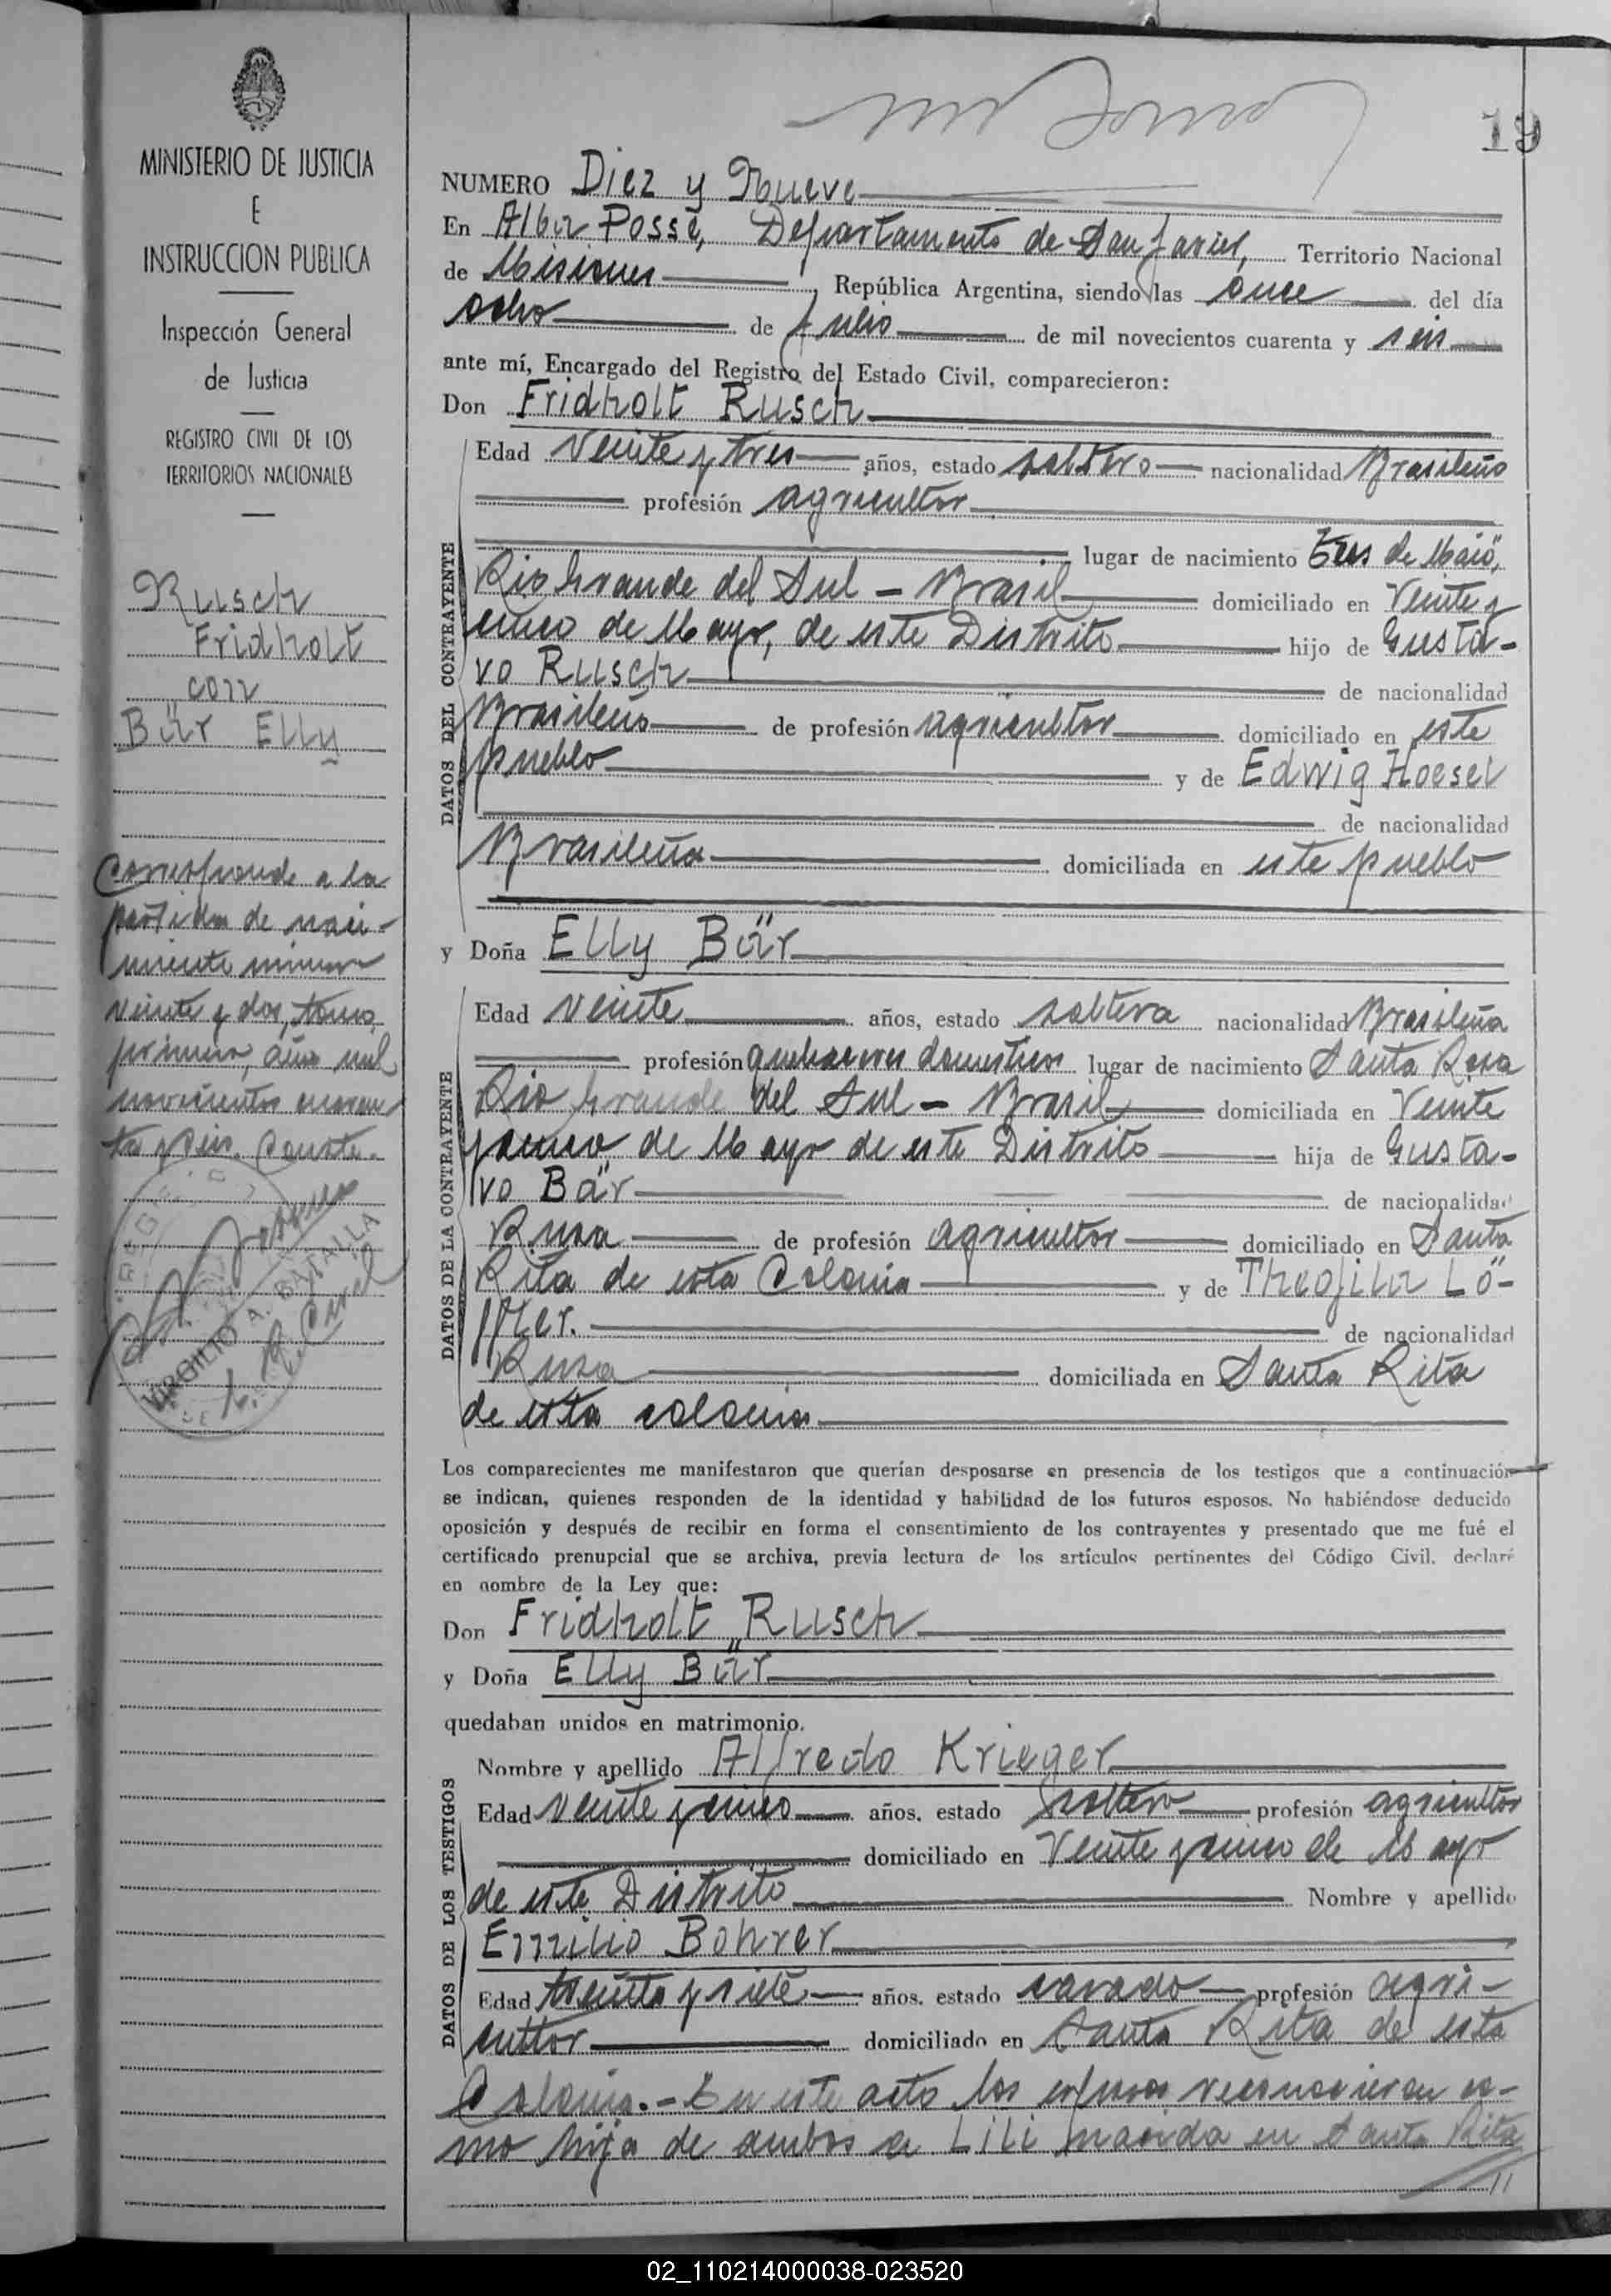 19
MINISTERIO DE JUSTICIA
E
INSTRUCCION PUBLICA
Inspección General
de Justicia
REGISTRO CIVIL DE LOS
TERRITORIOS NACIONALES
Rusch
Fridholt
con
Bär Elly
Corresponde a la
partida de naci-
miento número
veinte y dos, tomo
primero, año mil
novecientos cuaren
ta y seis. Conste.
VIRGILIO A. BATALLA
NUMERO Diez y Nueve
En Alba Posse, Departamento de San Javier, Territorio Nacional
de Misiones, República Argentina, siendo las once del día
ocho de Julio de mil novecientos cuarenta y seis
ante mí, Encargado del Registro del Estado Civil, comparecieron:
Don Fridholt Rusch
DATOS DEL CONTRAYENTE
Edad Veinte y tres años, estado soltero nacionalidad Brasileño
profesión agricultor
lugar de nacimiento Tres de Maio,
Rio Grande del Sul - Brasil domiciliado en Veinte y
cinco de Mayo, de este Distrito hijo de Gusta-
vo Rusch de nacionalidad
Brasileño de profesión agricultor domiciliado en este
pueblo y de Edwig Hoesel
de nacionalidad
Brasileña domiciliada en este pueblo
y Doña Elly Bär
DATOS DE LA CONTRAYENTE
Edad veinte años, estado soltera nacionalidad Brasileña
profesión quehaceres domesticos lugar de nacimiento Santa Rosa
Rio Grande del Sul - Brasil domiciliada en Veinte
y cinco de Mayo de este Distrito hija de Gusta-
vo Bär de nacionalidad
Rusa de profesión agricultor domiciliado en Santa
Rita de esta Colonia y de Theofila Lö-
ffler. de nacionalidad
Rusa domiciliada en Santa Rita
de esta colonia
Los comparecientes me manifestaron que querían desposarse en presencia de los testigos que a continuación
se indican, quienes responden de la identidad y habilidad de los futuros esposos. No habiéndose deducido
oposición y después de recibir en forma el consentimiento de los contrayentes y presentado que me fué el
certificado prenupcial que se archiva, previa lectura de los artículos pertinentes del Código Civil, declaré
en nombre de la Ley que:
Don Fridholt Rusch
y Doña Elly Bär
quedaban unidos en matrimonio.
DATOS DE LOS TESTIGOS
Nombre y apellido Alfredo Krieger
Edad veinte y cinco años, estado soltero profesión agricultor
domiciliado en Veinte y cinco de Mayo
de este Distrito Nombre y apellido
Emilio Bohrer
Edad treinta y siete años, estado casado profesión agri-
cultor domiciliado en Santa Rita de esta
Colonia.- En este acto los esposos reconocieron co-
mo hija de ambos a Lili nacida en Santa Rita
02_110214000038-023520